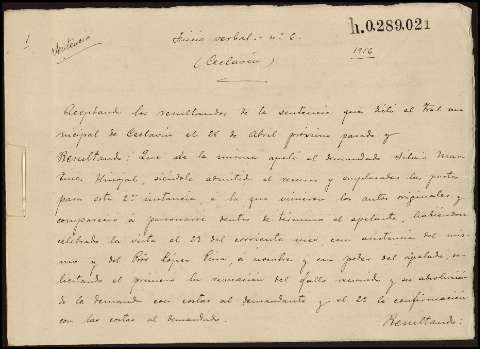 h.0.289.021
1
Sentencia
Juicio verbal.- nº 6.
1916
(Ceclavín)
Aceptando los resultandos de la sentencia que dictó el Tral mu-
nicipal de Ceclavín el 26 de Abril próximo pasado y
Resultando: Que de la misma apeló el demandado Silvio Mar-
tínez Hinojal, siéndole admitido el recurso y emplazadas las partes
para esta 2ª instancia, a la que vinieron los autos originales y
compareció á personarse dentro de término el apelante, habiéndose
celebrado la vista el 23 del corriente mes con asistencia del mis-
mo y del Pror López á nombre y con poder del apelado, so-
licitando el primero la revocación del fallo recurrido y su absolución
de la demanda con costas al demandante y el 2º la confirmación
con las costas al demandado.
Resultando: